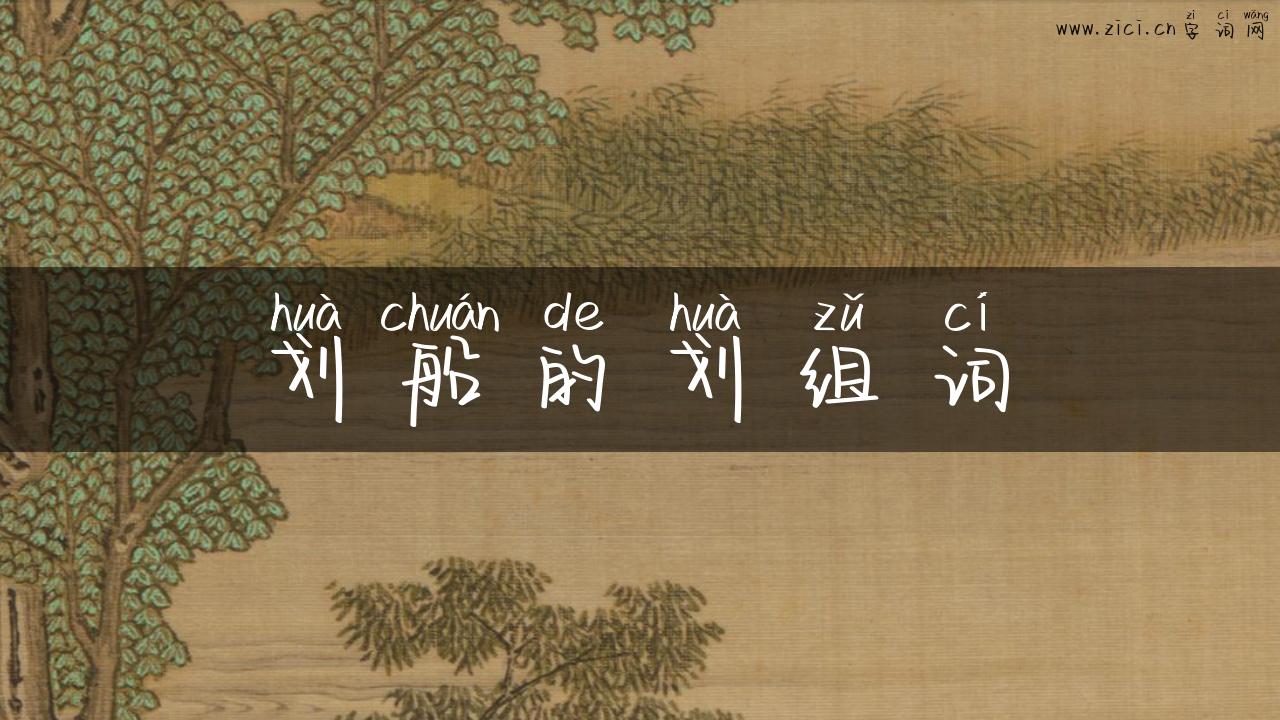 zì cí wǎng
www.zici.cn 字词网
huà chuán de huà zǔ cí
划船的划组词